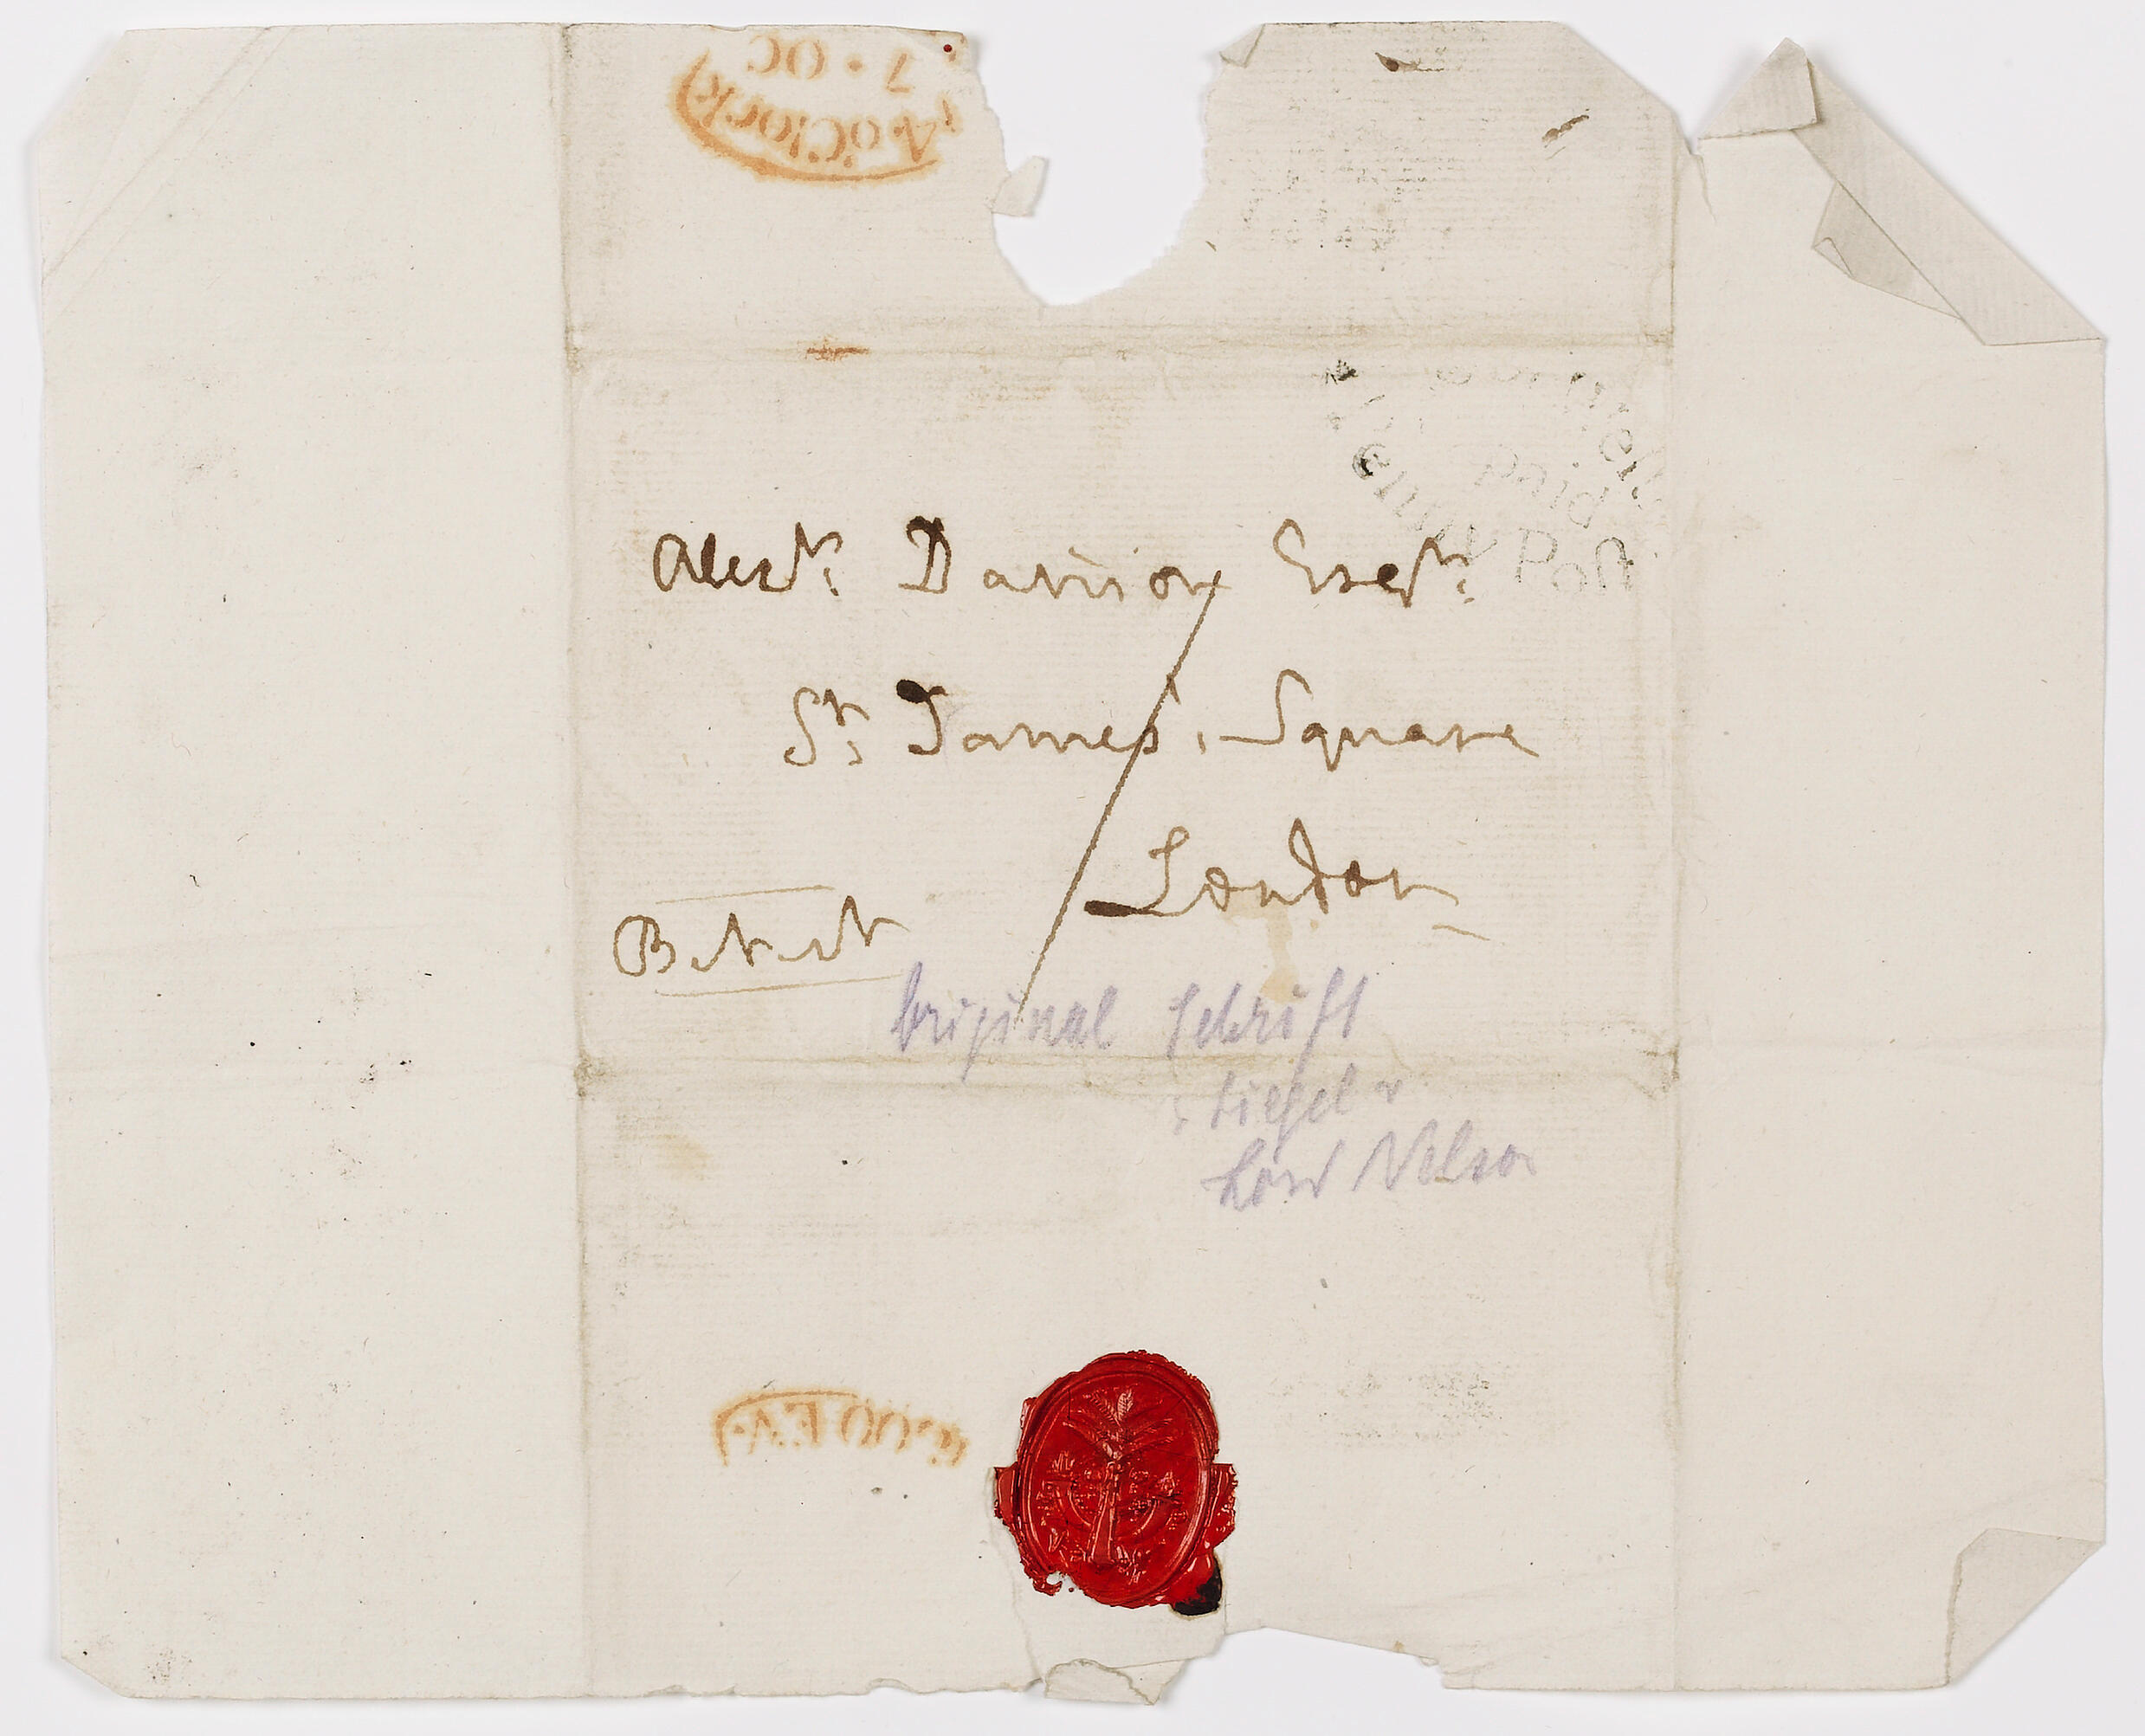 4 o'Clock
7 · OC
Penny Post
Paid
Alexr. Davison Esqr.
St. James's Square
London
Original Schrift
Siegel v
Lord Nelson